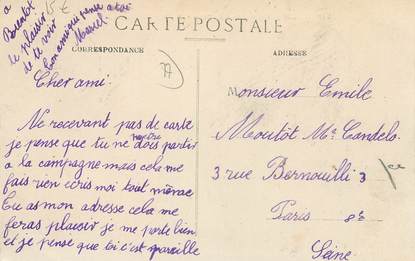 a
Bientôt 5 €
le plaisir
de te voir
ton ami qui pense a toi
Marcel
CARTE POSTALE
CORRESPONDANCE
ADRESSE
77
Cher ami.
Ne recevant pas de carte
je pense que tu ne dois partir
a la campagne mais cela me
fais rien ecris moi tout même
Tu as mon adresse cela me
feras plaisir je me porte bien
et je pense que toi c'est pareille
Monsieur Emile
Moutôt Mr Candelo.
3 rue Bernouilli 3
Paris 8e
Seine.